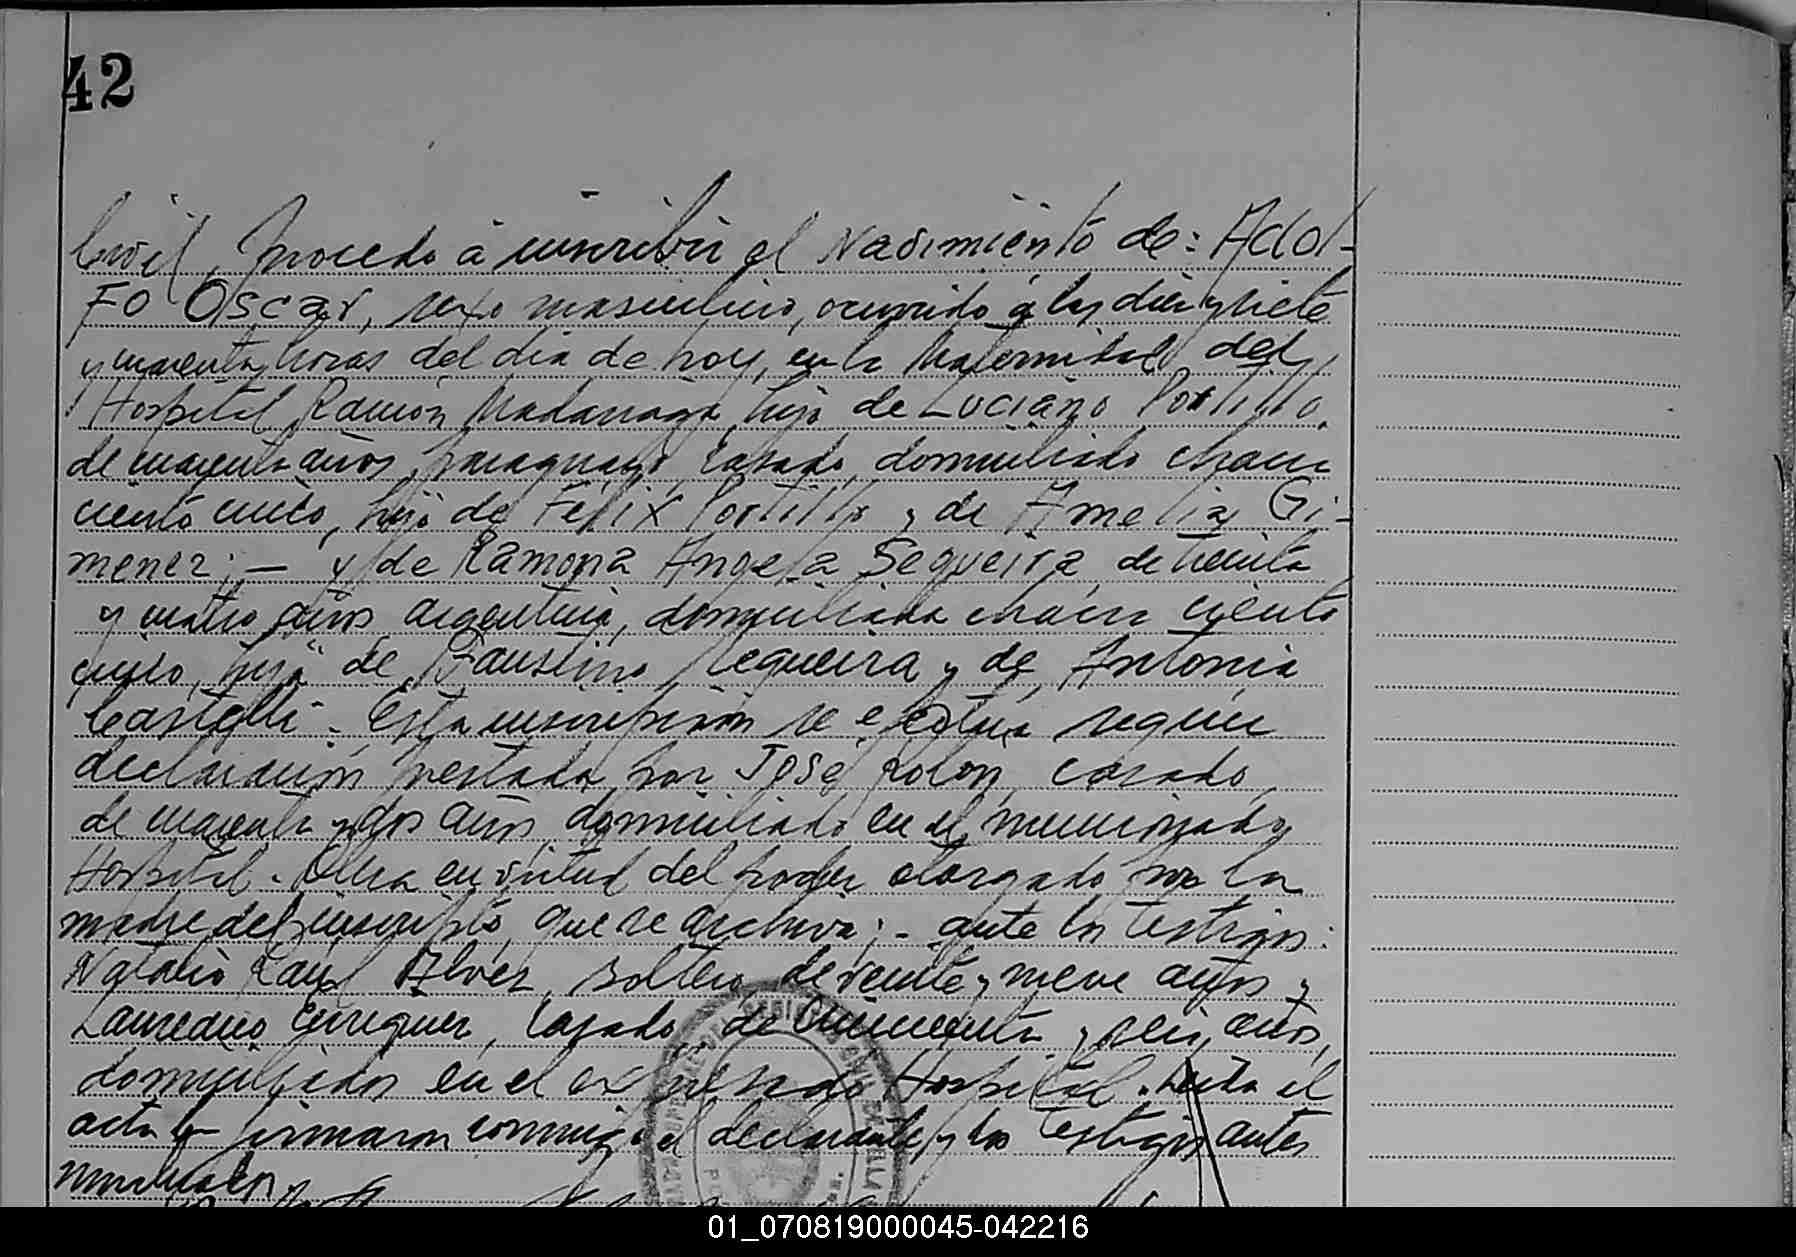 42
Civil, procedo a inscribir el Nacimiento de: Adol-
fo Oscar, sexo masculino, ocurrido a las diez y siete
y cuarenta horas del dia de hoy, en la Maternidad del
Hospital Ramón Madariaga, hijo de Luciano Portillo,
de cuarenta años, paraguayo, casado, domiciliado chacra
ciento cinco, hijo de Felix Portillo y de Amelia Gi-
menez; — y de Ramona Angela Segueira, de treinta
y cuatro años argentina, domiciliada chacra ciento
cinco, hija de Faustino Segueira y de Antonia
Castelli - Esta inscripción se efectua según
declaración prestada por José Rolon, casado,
de cuarenta y dos años, domiciliado en el mencionado
Hospital. en virtud del poder otorgado por la
madre del inscripto, que se archiva; - ante los testigos:
Natalio Raul Alvez, soltero, de veinte y nueve años y
Laureano Enriquez, casado, de cincuenta y seis años,
domiciliados en el expresado Hospital. Leida el
acta la firmaron conmigo el declarante y los testigos antes
REGISTRO CIVIL
01_070819000045-042216